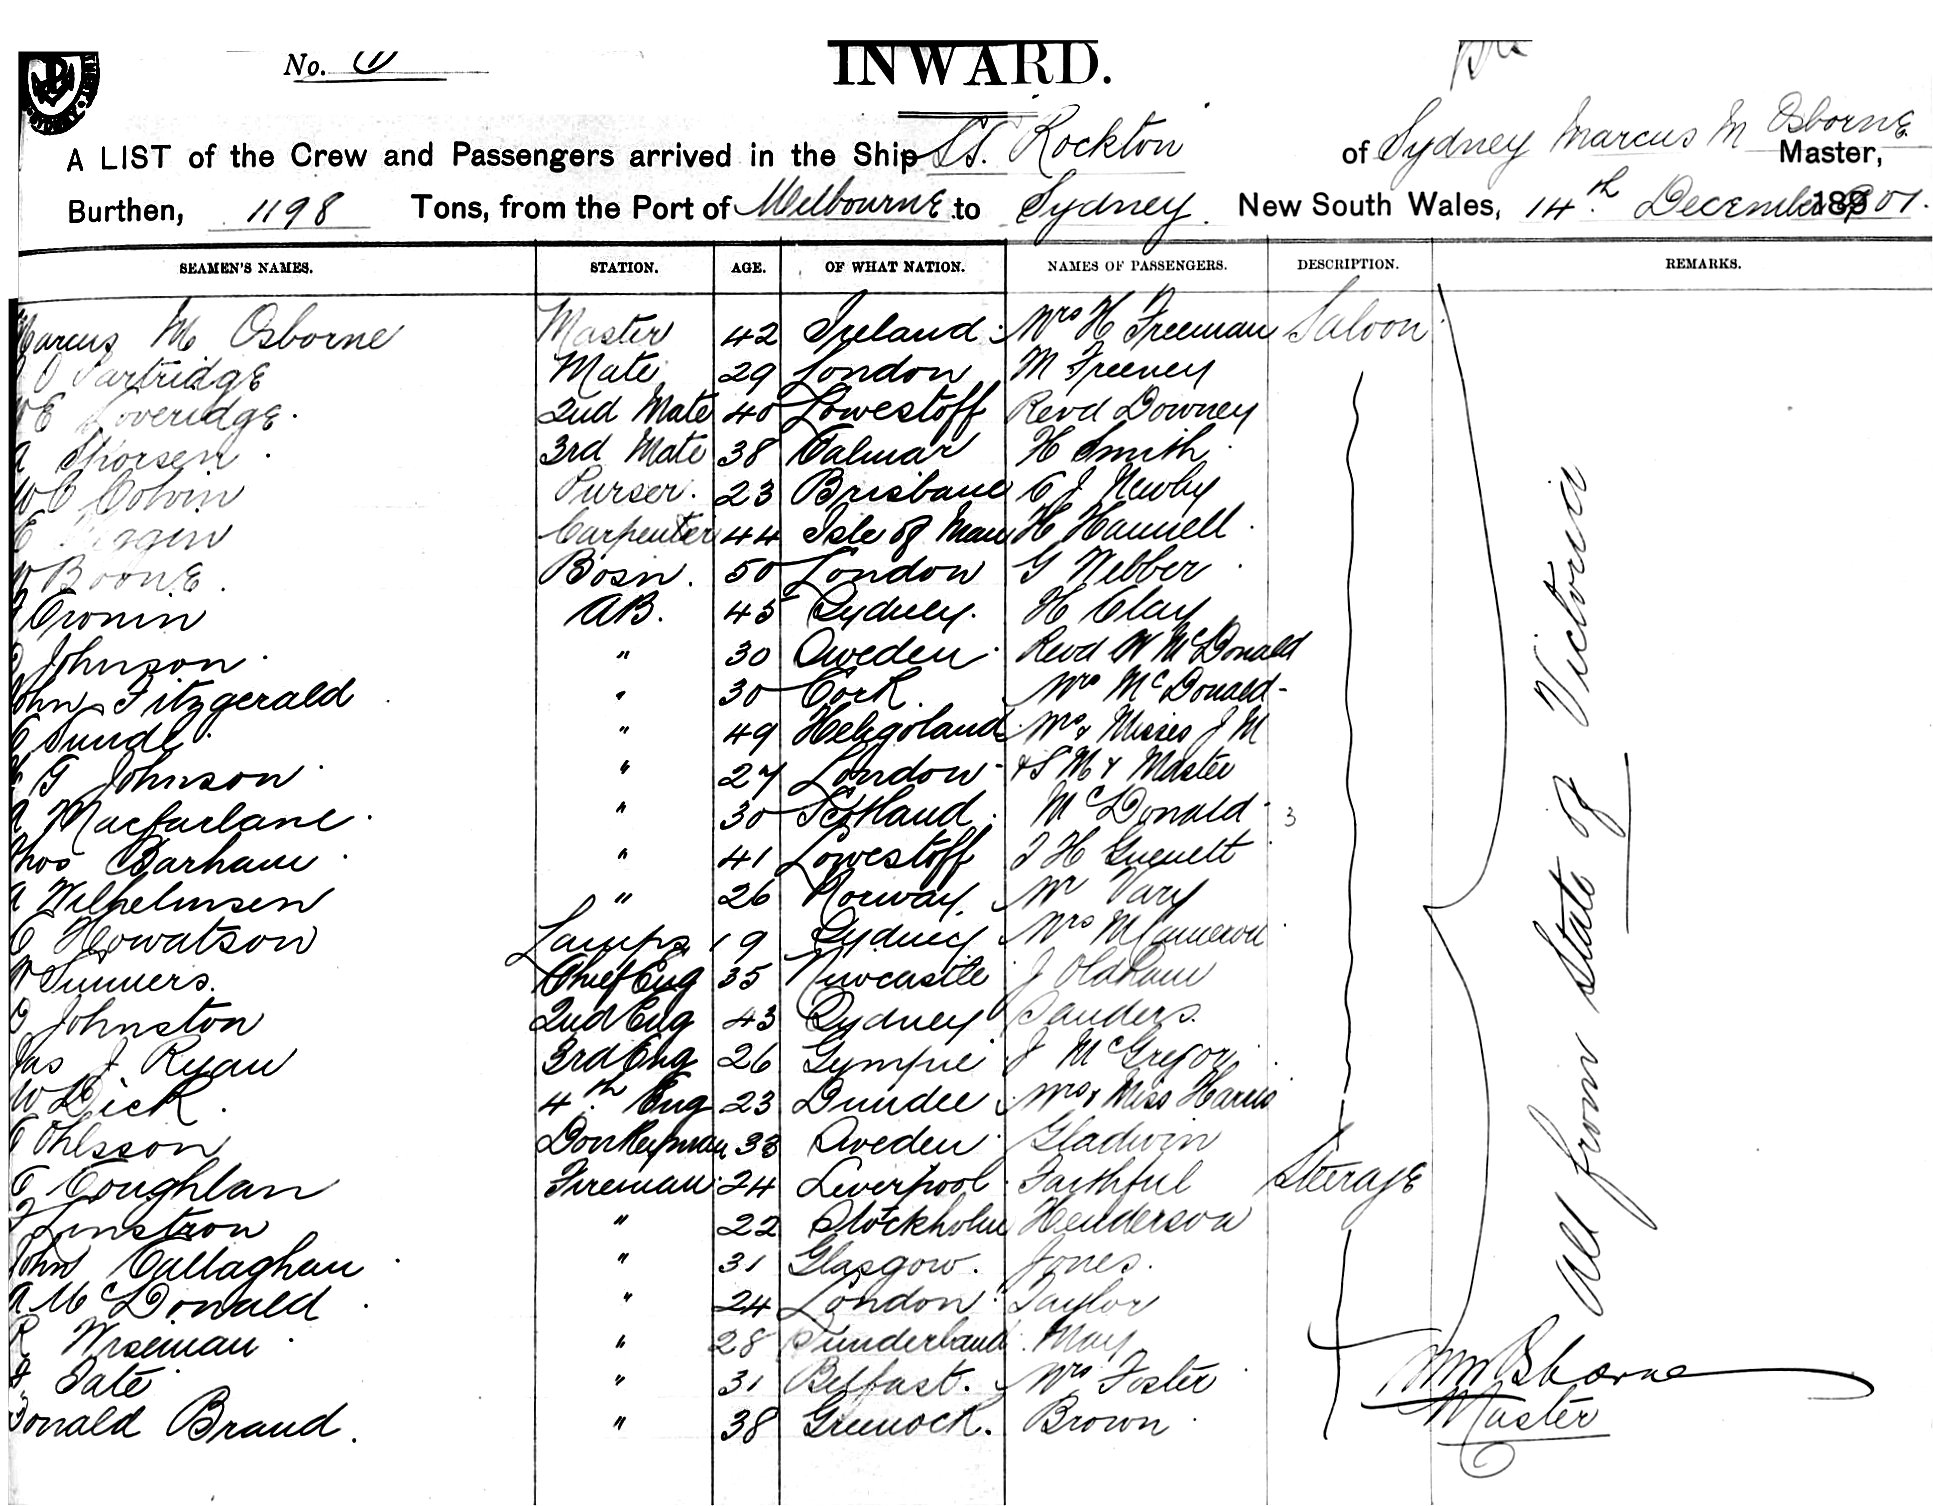 No. 1
INWARD.
A LIST of the Crew and Passengers arrived in the Ship S.S. Rockton of Sydney Marcus M Osborne Master,
Burthen, 1198 Tons, from the Port of Melbourne to Sydney. New South Wales, 14th December 1901.
SEAMEN'S NAMES. STATION. AGE. OF WHAT NATION. NAMES OF PASSENGERS. DESCRIPTION. REMARKS.
Marcus M Osborne Master 42 Ireland Mrs H Freeman Saloon
Partridge Mate 29 London M Freeney
Loveridge 2nd Mate 40 Lowestoff Revd Downey
A Thorsen 3rd Mate 38 Calmar H Smith
W C Colvin Purser. 23 Brisbane C J Newby
E Carpenter 44 Isle of Man H Hannell
W Boone. Bosn. 50 London G Webber
Cronin AB. 45 Sydney. H Clay
Johnson " 30 Sweden Revd W McDonald
John Fitzgerald " 30 Cork. Mrs McDonald
C Sundl " 49 Heligoland Mrs & Misses J M
G Johnson " 27 London & S M & Master
A Macfarlane " 30 Scotland McDonald 3
Thos Barham " 41 Lowestoff H
A Wilhelmsen " 26 Norway. Mr Vary
C Howatson Lamps 19 Sydney Mrs M Cameron
W Summers. Chief Eng 35 Newcastle J Oldham
Johnston 2nd Eng 43 Sydney Sanders.
Jas J Ryan 3rd Eng 26 Gympie J McGregor
W Dick 4th Eng 23 Dundee Mrs & Miss Harris
Ohlsson Donkeyman 33 Sweden Gladwin
C Coughlan Fireman 24 Liverpool Faithful Steerage
Linstron " 22 Stockholm Henderson
John Callaghan " 31 Glasgow. Jones.
A McDonald " 24 London Taylor
R Wiseman " 28 Sunderland May
Tate " 31 Belfast. Mrs Foster
Donald Brand " 38 Greenock. Brown
All from State of Victoria
M M Osborne
Master